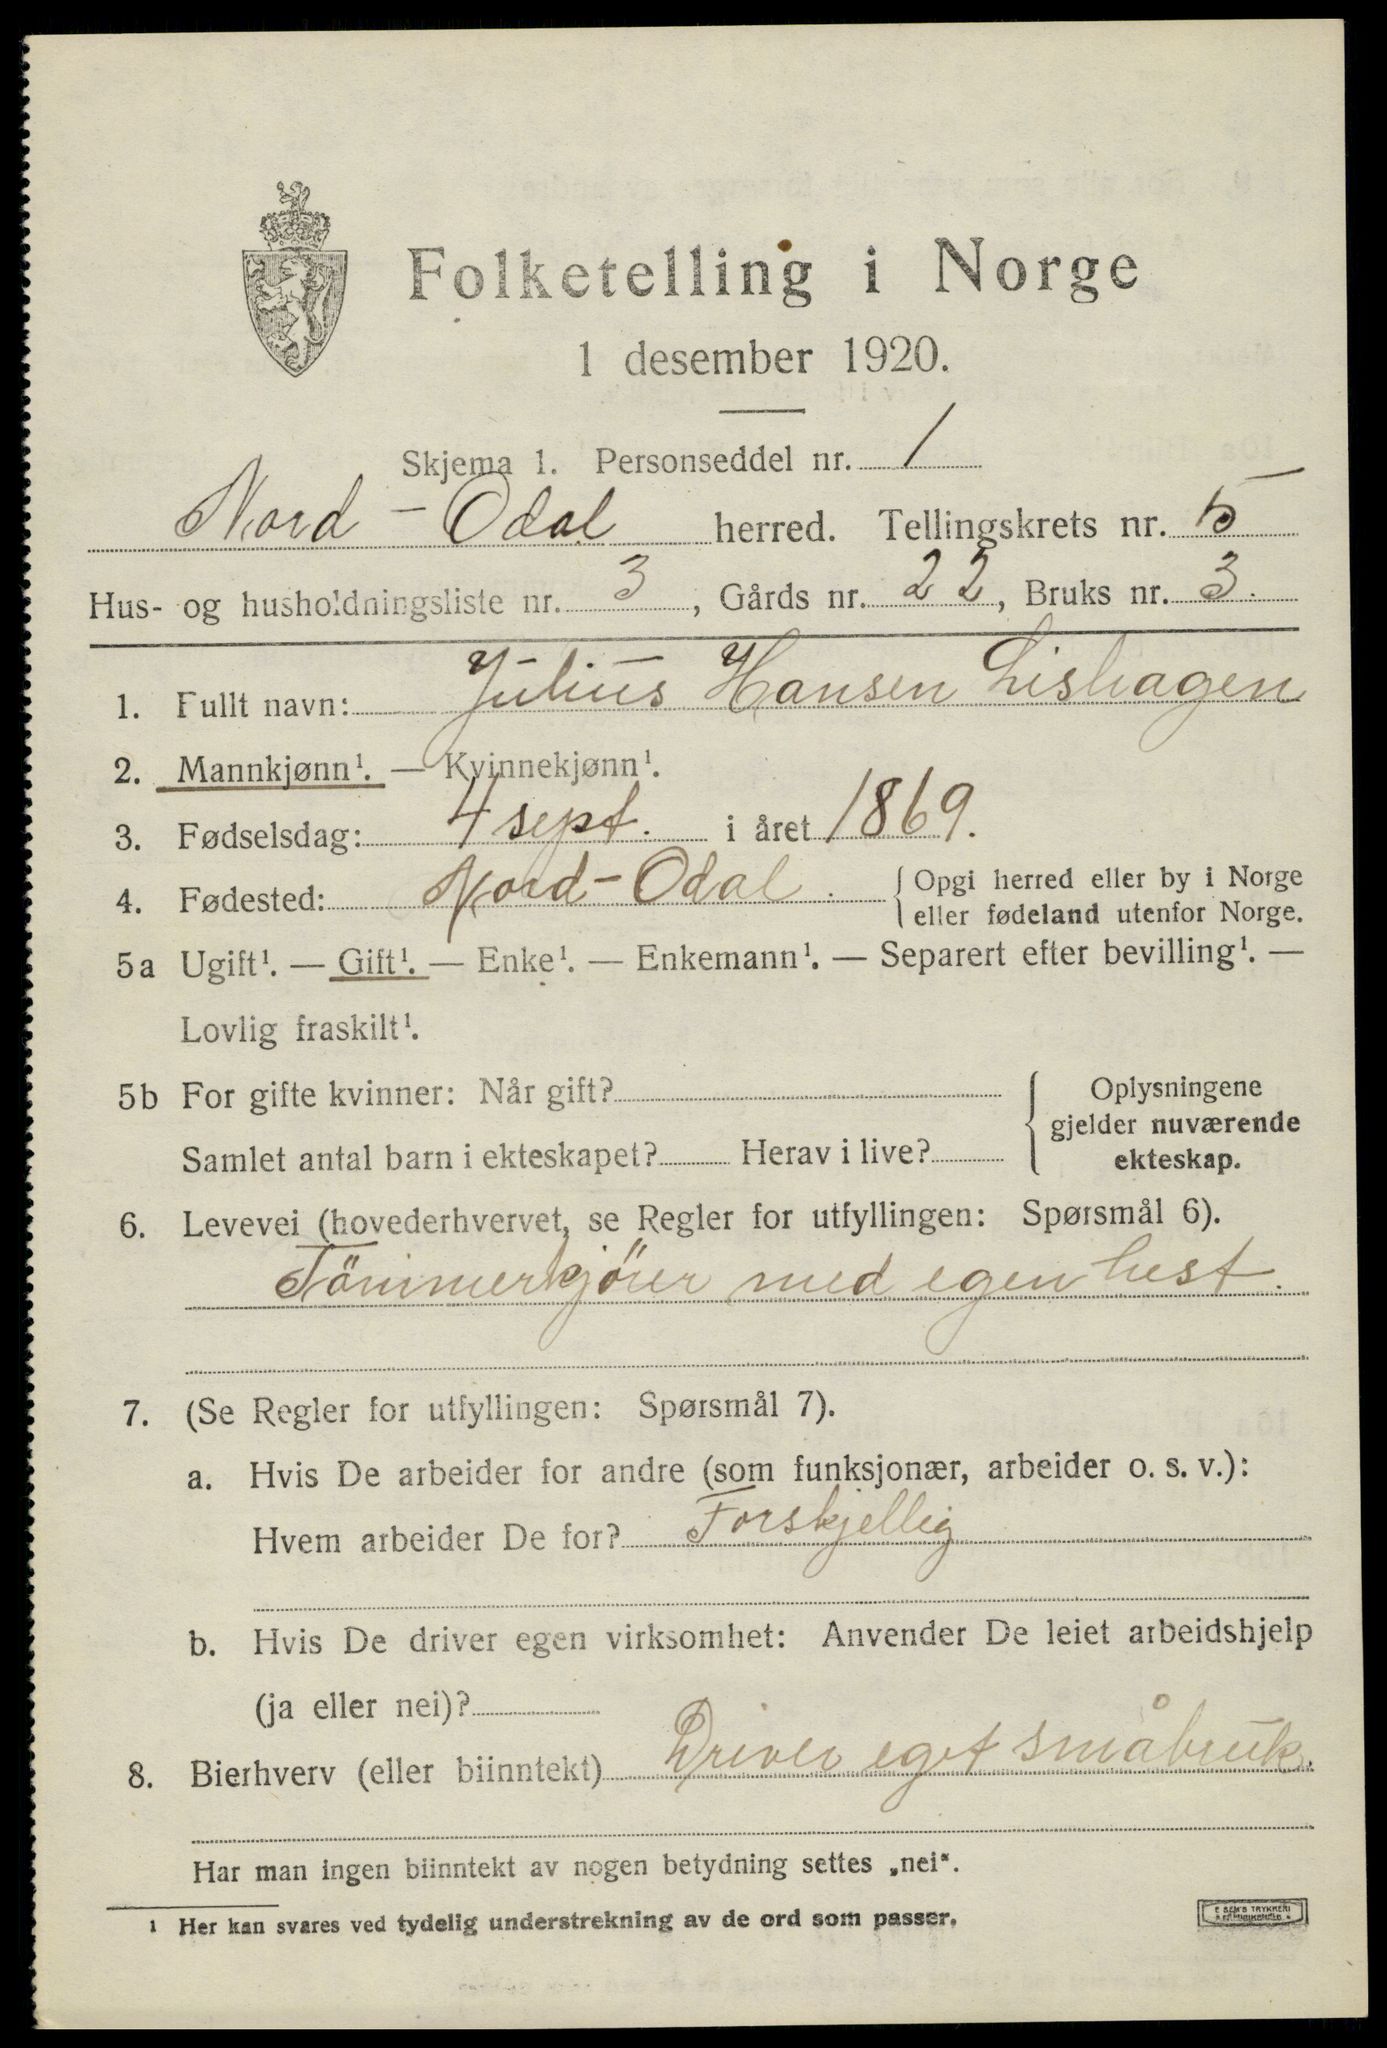 Folketelling i Norge
1 desember 1920.
Skjema 1. Personseddel nr. 1
Nord - Odal herred. Tellingskrets nr. 5
Hus- og husholdningsliste nr. 3, Gårds nr. 22, Bruks nr. 3.
1. Fullt navn: Julius Hansen Lishagen
2. Mannkjønn¹. — Kvinnekjønn¹.
3. Fødselsdag: 4 sept. i året 1869.
4. Fødested: Nord-Odal. { Opgi herred eller by i Norge
eller fødeland utenfor Norge.
5a Ugift¹. — Gift¹. — Enke¹. — Enkemann¹. — Separert efter bevilling¹. —
Lovlig fraskilt¹.
5b For gifte kvinner: Når gift?
Samlet antal barn i ekteskapet? Herav i live?
{ Oplysningene
gjelder nuværende
ekteskap.
6. Levevei (hovederhvervet, se Regler for utfyllingen: Spørsmål 6).
Tömmerkjörer med egen hest.
7. (Se Regler for utfyllingen: Spørsmål 7).
a. Hvis De arbeider for andre (som funksjonær, arbeider o. s. v.):
Hvem arbeider De for? Forskjellig
b. Hvis De driver egen virksomhet: Anvender De leiet arbeidshjelp
(ja eller nei)?
8. Bierhverv (eller biinntekt) Driver eget småbruk.
Har man ingen biinntekt av nogen betydning settes „nei“.
¹ Her kan svares ved tydelig understrekning av de ord som passer.